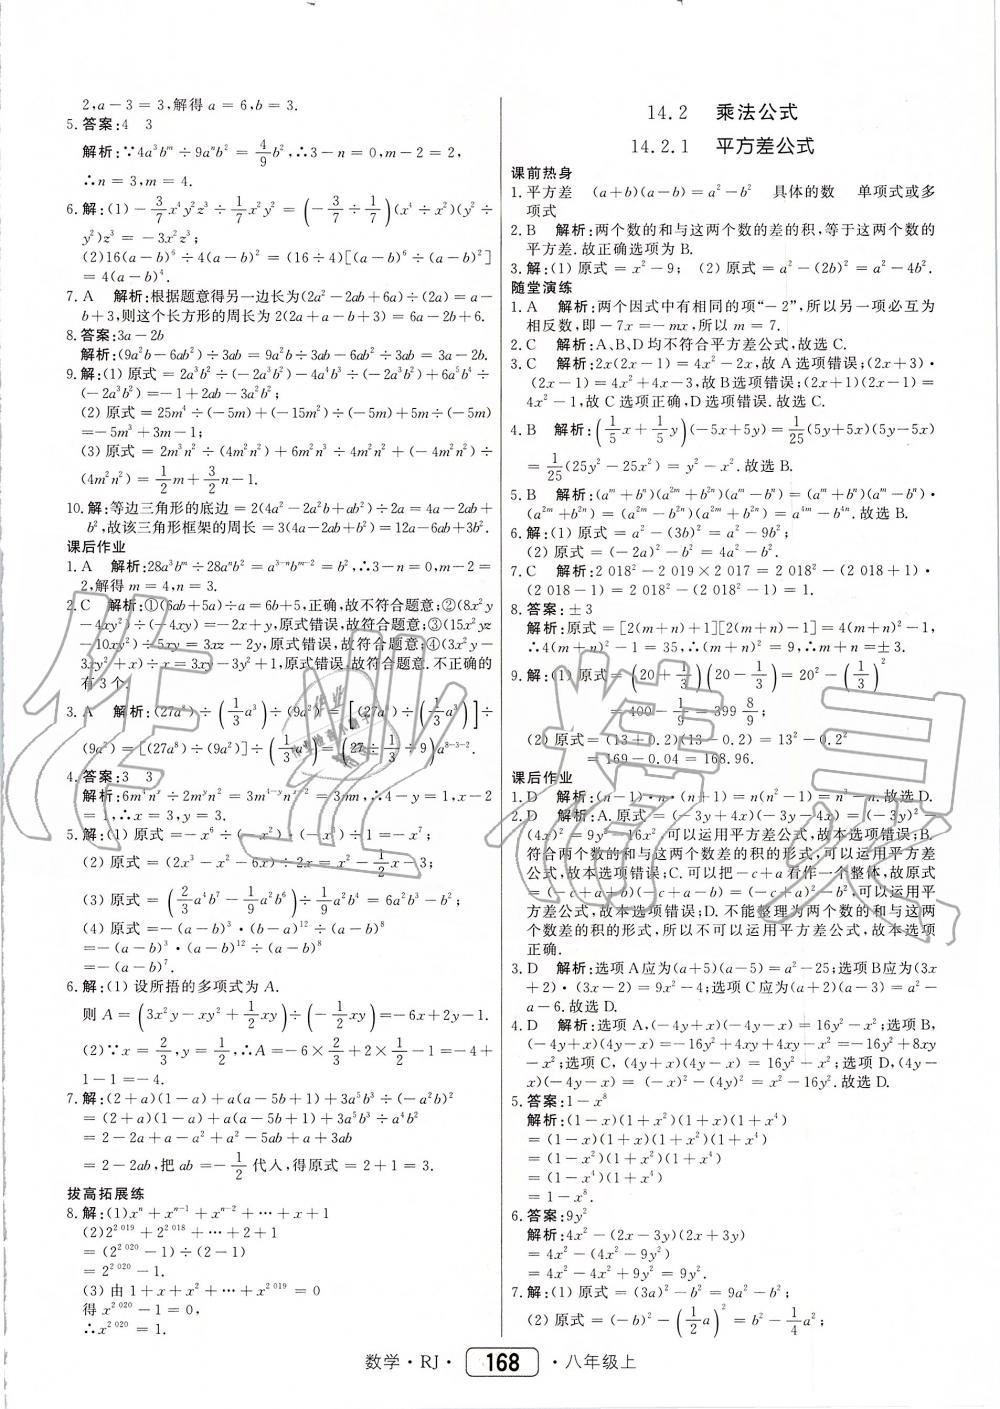 2,a－3＝3,解得 a＝6,b＝3.
5. 答案:4　3
解析:∵4a³bᵐ÷9aⁿb²＝4/9 b²,∴3－n＝0,m－2＝2,
∴n＝3,m＝4.
6. 解:(1)－3/7 x⁴y²z³÷1/7 x²y²＝(－3/7÷1/7)(x⁴÷x²)(y²÷
y²)z³＝－3x²z³;
(2)16(a－b)⁶÷4(a－b)²＝(16÷4)[(a－b)⁶÷(a－b)²]
＝4(a－b)⁴.
7. A　解析:根据题意得另一边长为(2a²－2ab＋6a)÷(2a)＝a－
b＋3,则这个长方形的周长为 2(2a＋a－b＋3)＝6a－2b＋6.
8. 答案:3a－2b
解析:(9a²b－6ab²)÷3ab＝9a²b÷3ab－6ab²÷3ab＝3a－2b.
9. 解:(1) 原式＝2a³b²÷(－2a³b²)－4a⁴b³÷(－2a³b²)＋6a⁵b⁴÷
(－2a³b²)＝－1＋2ab－3a²b²;
(2) 原式＝25m⁴÷(－5m)＋(－15m²)÷(－5m)＋5m÷(－5m)
＝－5m³＋3m－1;
(3) 原式＝2m³n²÷(4m²n²)＋6m²n³÷4m²n²＋(－4m²n²)÷
(4m²n²)＝1/2 m＋3/2 n－1.
10. 解:等边三角形的底边＝2(4a²－2a²b＋ab²)÷2a＝4a－2ab＋
b²,故该三角形框架的周长＝3(4a－2ab＋b²)＝12a－6ab＋3b².
课后作业
1. A　解析:28a³bᵐ÷28aⁿb²＝a³⁻ⁿbᵐ⁻²＝b²,∴3－n＝0,m－2＝
2,解得 m＝4,n＝3.
2. C　解析:①(6ab＋5a)÷a＝6b＋5,正确,故不符合题意;②(8x²y
－4xy²)÷(－4xy)＝－2x＋y,原式错误,故符合题意;③(15x²yz
－10xy²)÷5xy＝3xz－2y,原式错误,故符合题意;④(3x²y－
3xy²＋x)÷x＝3xy－3y²＋1,原式错误.故符合题意.不正确的
有 3 个.
3. A　解析:(27a⁸)÷(1/3 a³)÷(9a²)＝[(27a⁸)÷(1/3 a³)]÷
(9a²)＝[(27a⁸)÷(9a²)]÷(1/3 a³)＝(27÷1/3÷9)a⁸⁻³⁻².
4. 答案:3　3
解析:6m⁴nˣ÷2mʸn²＝3m⁴⁻ʸnˣ⁻²＝3mn,∴4－y＝1,x－2
＝1,∴x＝3,y＝3.
5. 解:(1) 原式＝－x⁶÷(－x²)·(－x³)÷1＝－x⁷;
(2) 原式＝(2x³－x²－6x)÷2x＝x²－1/2 x－3;
(3) 原式＝(2/3 a⁴b⁷－1/9 a²b⁶)÷1/9 a²b⁶＝6a²b³－b²;
(4) 原式＝－(a－b)³·(b－a)¹²÷(a－b)⁸
＝－(a－b)³·(a－b)¹²÷(a－b)⁸
＝－(a－b)⁷.
6. 解:(1) 设所捂的多项式为 A.
则 A＝(3x²y－xy²＋1/2 xy)÷(－1/2 xy)＝－6x＋2y－1.
(2)∵x＝2/3,y＝1/2,∴A＝－6×2/3＋2×1/2－1＝－4＋
1－1＝－4.
7. 解:(2＋a)(1－a)＋a(a－5b＋1)＋3a⁵b³÷(－a²b)²
＝(2＋a)(1－a)＋a(a－5b＋1)＋3a⁵b³÷a⁴b²
＝2－2a＋a－a²＋a²－5ab＋a＋3ab
＝2－2ab,把 ab＝－1/2 代人,得原式＝2＋1＝3.
拔高拓展练
8. 解:(1)xⁿ＋xⁿ⁻¹＋xⁿ⁻²＋…＋x＋1
(2)2²⁰¹⁹＋2²⁰¹⁸＋…＋2＋1
＝(2²⁰²⁰－1)÷(2－1)
＝2²⁰²⁰－1.
(3) 由 1＋x＋x²＋…＋x²⁰¹⁹＝0
得 x²⁰²⁰－1＝0,
∴x²⁰²⁰＝1.
14.2　乘法公式
14.2.1　平方差公式
课前热身
1. 平方差　(a＋b)(a－b)＝a²－b²　具体的数　单项式或多
项式
2. B　解析:两个数的和与这两个数的差的积,等于这两个数的
平方差.故正确选项为 B.
3. 解:(1) 原式＝x²－9; (2) 原式＝a²－(2b)²＝a²－4b².
随堂演练
1. A　解析:两个因式中有相同的项“－2”,所以另一项必互为
相反数,即－7x＝－mx,所以 m＝7.
2. C　解析:A、B、D 均不符合平方差公式,故选 C.
3. C　解析:2x(2x－1)＝4x²－2x,故 A 选项错误;(2x＋3)·
(2x－1)＝4x²＋4x－3,故 B 选项错误;(2x＋1)(2x－1)＝
4x²－1,故 C 选项正确,D 选项错误.故选 C.
4. B　解析:(1/5 x＋1/5 y)(－5x＋5y)＝1/25(5y＋5x)(5y－5x)
＝1/25(25y²－25x²)＝y²－x².故选 B.
5. B　解析:(aᵐ＋bⁿ)(a²ᵐ＋b²ⁿ)(aᵐ－bⁿ)＝(aᵐ＋bⁿ)(aᵐ－bⁿ)·
(a²ᵐ＋b²ⁿ)＝(a²ᵐ－b²ⁿ)(a²ᵐ＋b²ⁿ)＝a⁴ᵐ－b⁴ⁿ.故选 B.
6. 解:(1) 原式＝a²－(3b)²＝a²－9b²;
(2) 原式＝(－2a)²－b²＝4a²－b².
7. C　解析:2 018²－2 019×2 017＝2 018²－(2 018＋1)·
(2 018－1)＝2 018²－(2 018²－1)＝1.
8. 答案:±3
解析:原式＝[2(m＋n)＋1][2(m＋n)－1]＝4(m＋n)²－1,
∴4(m＋n)²－1＝35,∴(m＋n)²＝9,∴m＋n＝±3.
9. 解:(1) 原式＝(20＋1/3)(20－1/3)＝20²－(1/3)²
＝400－1/9＝399 8/9;
(2) 原式＝(13＋0.2)(13－0.2)＝13²－0.2²
＝169－0.04＝168.96.
课后作业
1. D　解析:(n－1)·n·(n＋1)＝n(n²－1)＝n³－n.故选 D.
2. D　解析:A.原式＝(－3y＋4x)(－3y－4x)＝(－3y)²－
(4x)²＝9y²－16x²,可以运用平方差公式,故本选项错误;B.
符合两个数的和与这两个数差的积的形式,可以运用平方差
公式,故本选项错误;C.可以把－c＋a 看作一个整体,故原式
＝(－c＋a＋b)(－c＋a－b)＝(－c＋a)²－b²,可以运用平
方差公式,故本选项错误;D.不能整理为两个数的和与这两
个数差的积的形式,所以不可以运用平方差公式,故本选项
正确.
3. D　解析:选项 A应为(a＋5)(a－5)＝a²－25;选项 B应为(3x
＋2)·(3x－2)＝9x²－4;选项 C应为(a＋2)(a－3)＝a²－
a－6.故选 D.
4. D　解析:选项 A,(－4y＋x)(－4y－x)＝16y²－x²;选项 B,
(－4y＋x)(4y－x)＝－16y²＋4xy＋4xy－x²＝－16y²＋8xy
－x²;选项 C, (4y＋x)(4y－x)＝16y²－x²;选项 D,(4y－
x)(－4y－x)＝(－x)²－(4y)²＝x²－16y².故选 D.
5. 答案:1－x⁸
解析:(1－x)(1＋x²)(1＋x)(1＋x⁴)
＝(1－x)(1＋x)(1＋x²)(1＋x⁴)
＝(1－x²)(1＋x²)(1＋x⁴)
＝(1－x⁴)(1＋x⁴)
＝1－x⁸.
6. 答案:9y²
解析:4x²－(2x－3y)(2x＋3y)
＝4x²－(4x²－9y²)
＝4x²－4x²＋9y²＝9y².
7. 解:(1) 原式＝(3a)²－b²＝9a²－b²;
(2) 原式＝(－b)²－(1/2 a)²＝b²－1/4 a²;
数学·RJ·　168　·八年级上